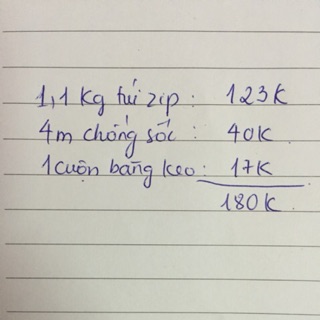 1,1 kg túi zip: 123K
4m chống sốc: 40K
1 cuộn băng keo: 17K
180K